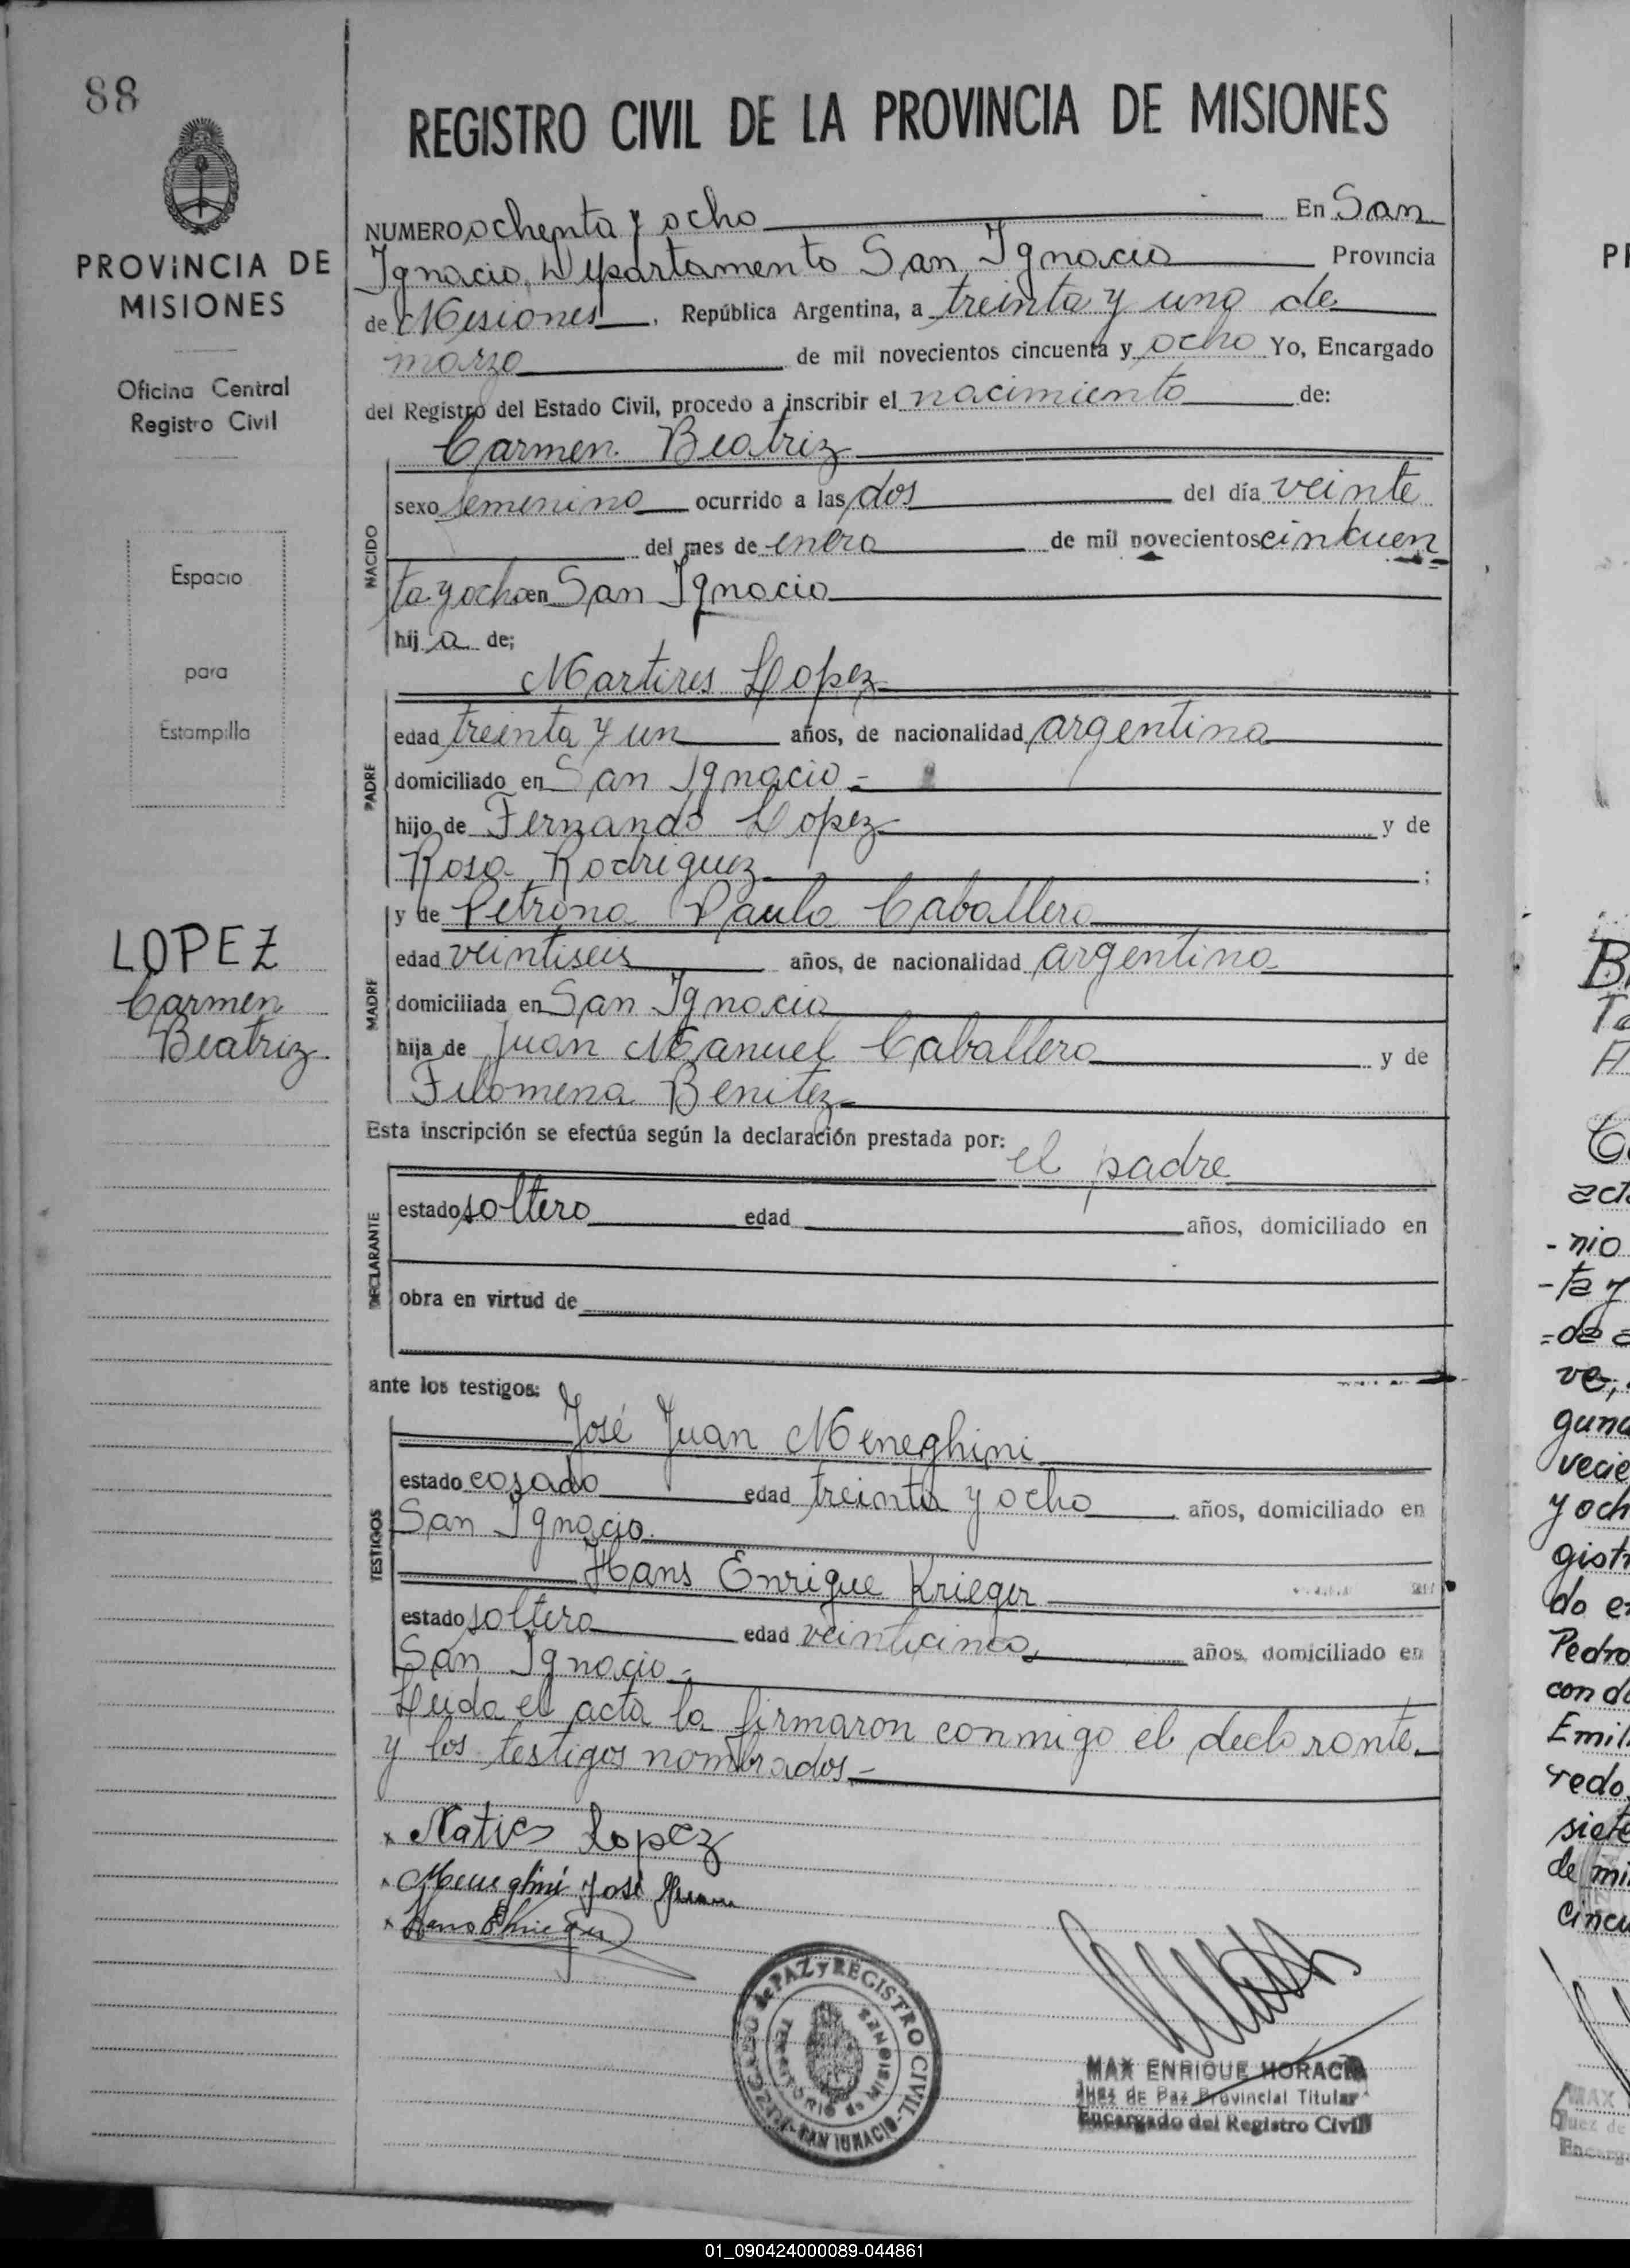 88
PROVINCIA DE
MISIONES
Oficina Central
Registro Civil
Espacio
para
Estampilla
LOPEZ
Carmen
Beatriz
REGISTRO CIVIL DE LA PROVINCIA DE MISIONES
NUMERO ochenta y ocho En San
Ignacio, Departamento San Ignacio Provincia
de Misiones, República Argentina, a treinta y uno de
marzo de mil novecientos cincuenta y ocho Yo, Encargado
del Registro del Estado Civil, procedo a inscribir el nacimiento de:
Carmen Beatriz
NACIDO
sexo femenino ocurrido a las dos del día veinte
del mes de enero de mil novecientos cincuen
ta y ocho en San Ignacio
hij a de;
Martires Lopez
PADRE
edad treinta y un años, de nacionalidad argentina
domiciliado en San Ignacio-
hijo de Fernando Lopez y de
Rosa Rodriguez ;
MADRE
y de Petrona Paula Caballero
edad veintiseis años, de nacionalidad argentina
domiciliada en San Ignacio
hija de Juan Manuel Caballero y de
Filomena Benitez
Esta inscripción se efectúa según la declaración prestada por:
el padre
DECLARANTE
estado soltero edad años, domiciliado en
obra en virtud de
ante los testigos:
TESTIGOS
José Juan Meneghini
estado casado edad treinta y ocho años, domiciliado en
San Ignacio
Hans Enrique Krieger
estado soltero edad veinticinco años, domiciliado en
San Ignacio-
Leida el acta la firmaron conmigo el declarante
y los testigos nombrados.-
x Lopez
Meneghini José Juan
JUZGADO de PAZ y REGISTRO CIVIL - SAN IGNACIO -
TERRITORIO de MISIONES
MAX ENRIQUE HORACIO
Juez de Paz Provincial Titular
Encargado del Registro Civil
acta
-nio
-ta y
=de
ve,
guna
vecie
y och
gistr
do en
Pedro
con do
Emil
redo
siete
de mi
cincu
MAX
Juez de
Encarg
01_090424000089-044861